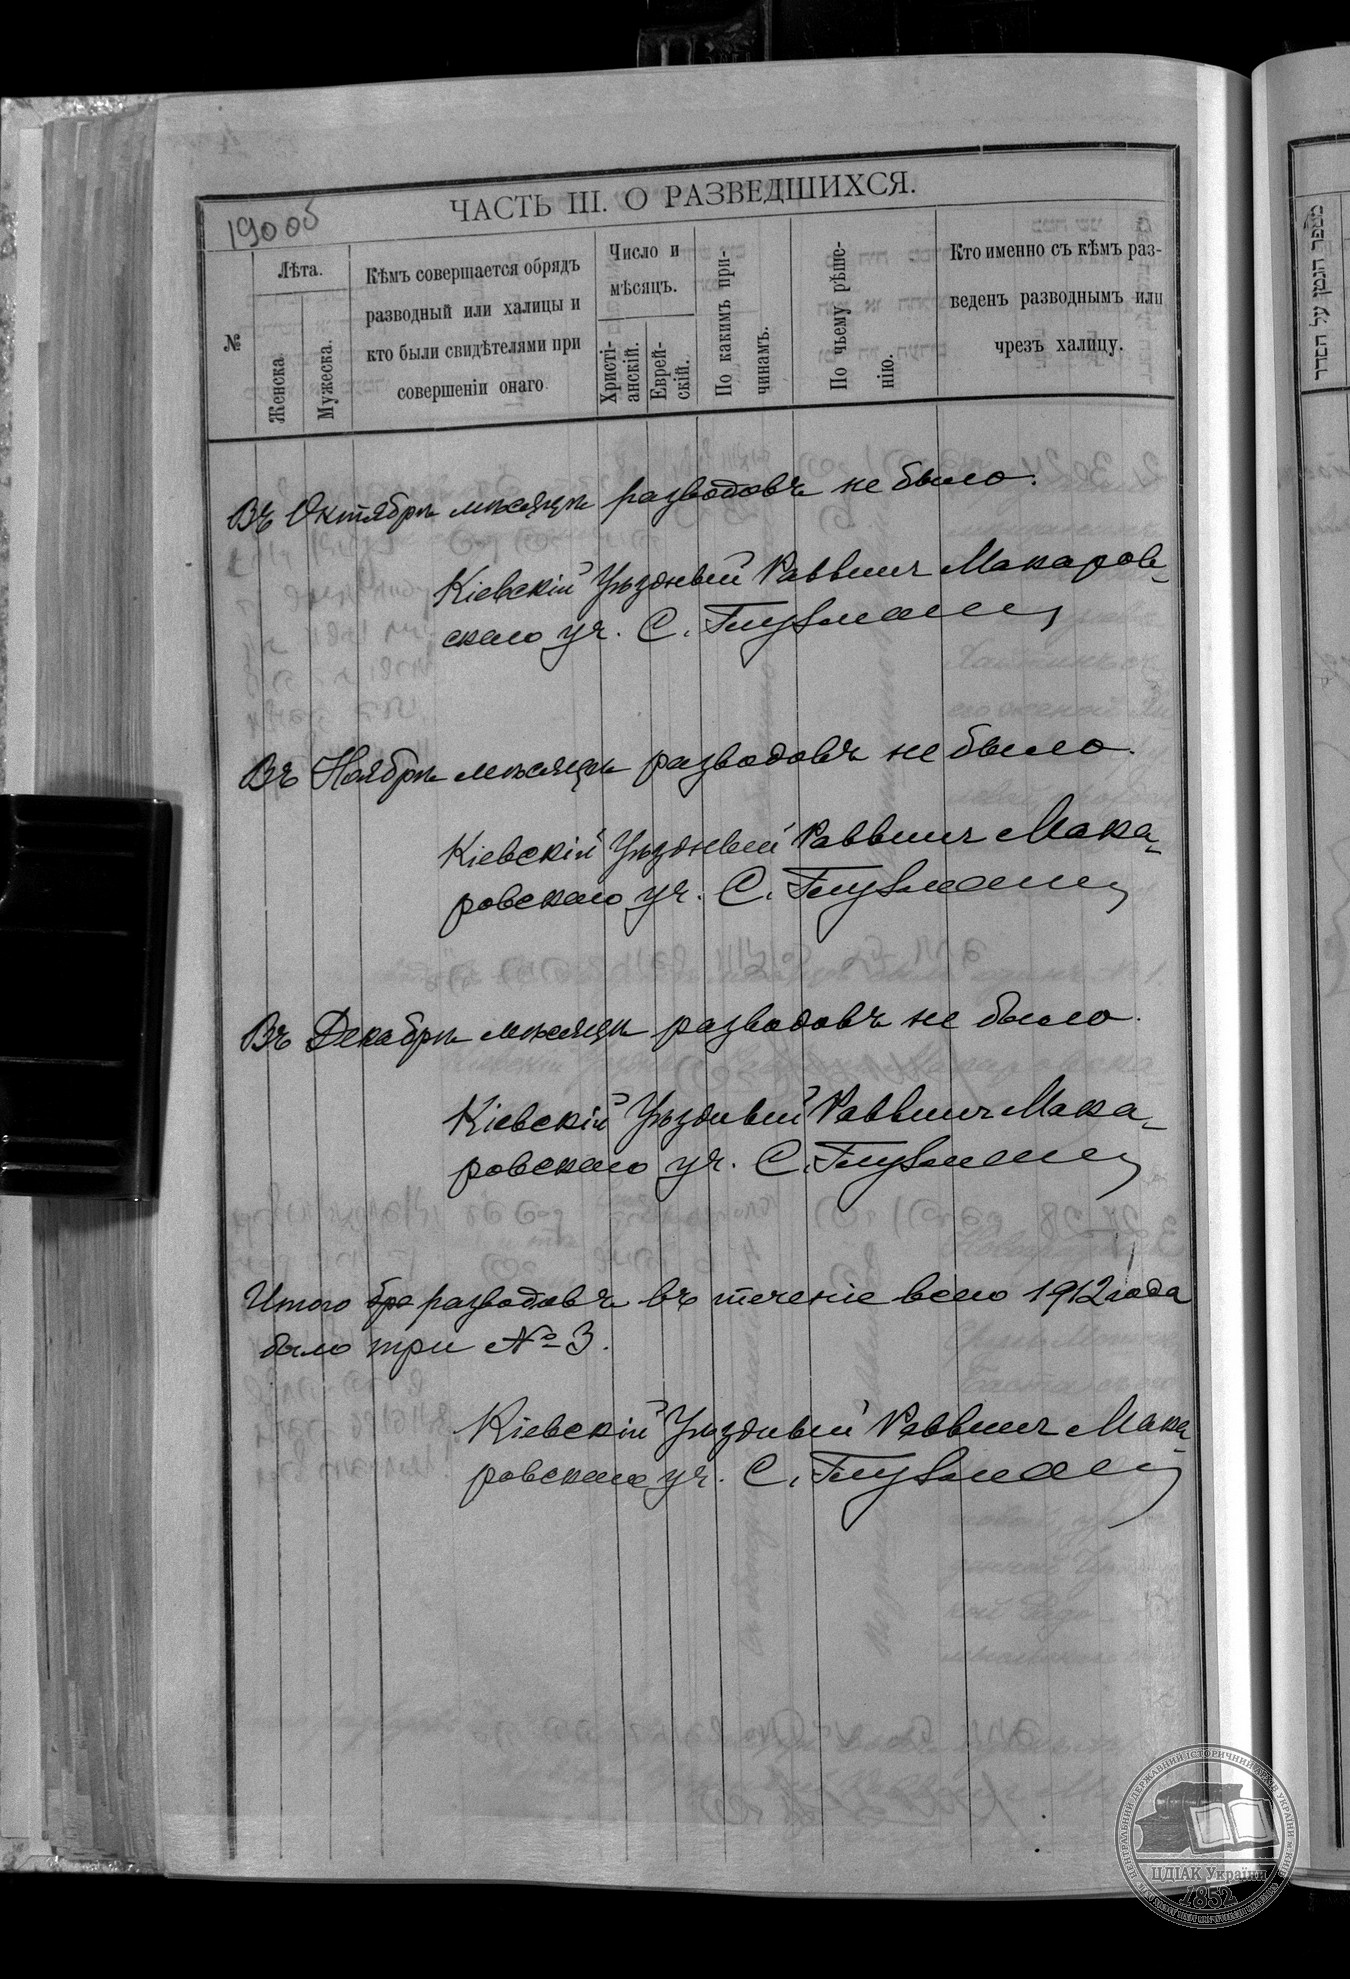 190 об
ЧАСТЬ III. О РАЗВЕДШИХСЯ.
№
Лѣта.
Женска
Мужеска.
Кѣмъ совершается обрядъ
разводный или халицы и
кто были свидѣтелями при
совершеніи онаго
Число и
мѣсяцъ.
Христі-
анскій.
Еврей-
скій.
По какимъ при-
чинамъ.
По чьему рѣше-
нію.
Кто именно съ кѣмъ раз-
веденъ разводнымъ или
чрезъ халицу.
Въ Октябрѣ мѣсяцѣ разводовъ не было.
Кіевскій Уѣздный Раввинъ Макаров-
скаго уч. С. Глузманъ
Въ Ноябрѣ мѣсяцѣ разводовъ не было.
Кіевскій Уѣздный Раввинъ Мака-
ровскаго уч. С. Глузманъ
Въ Декабрѣ мѣсяцѣ разводовъ не было.
Кіевскій Уѣздный Раввинъ Мака-
ровскаго уч. С. Глузманъ
Итого бра разводовъ въ теченіе всего 1912 года
было три № 3.
Кіевскій Уѣздный Раввинъ Мака-
ровскаго уч. С. Глузманъ
מספר הנמן על הסדר
ЦЕНТРАЛЬНИЙ ДЕРЖАВНИЙ ІСТОРИЧНИЙ АРХІВ УКРАЇНИ м. КИЇВ
ЦДІАК України
1852